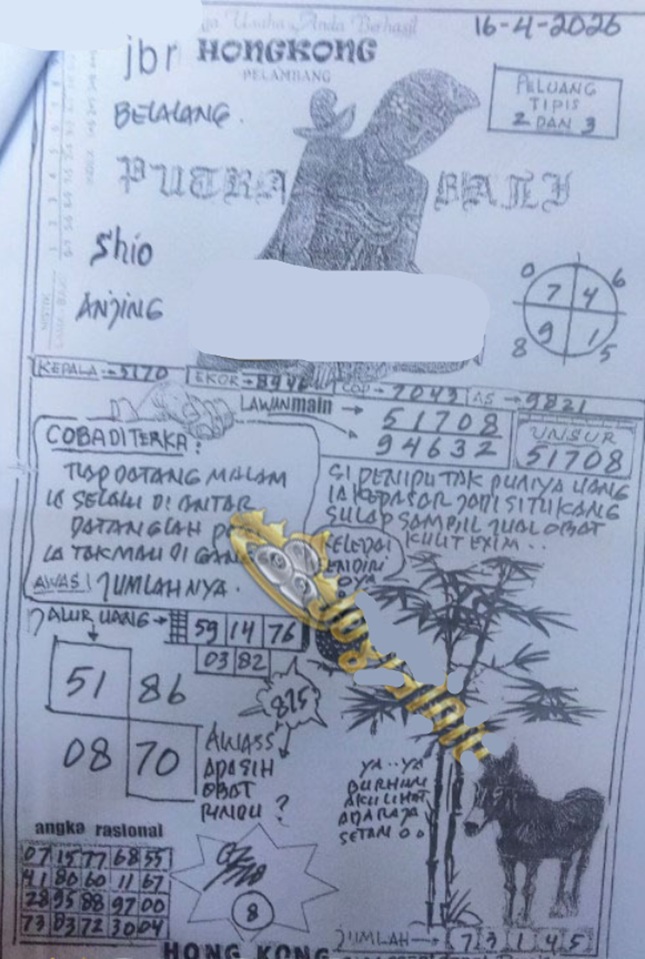 Usaha Anda Berhasil
16-4-2026
jbr HONGKONG
PELAMBANG
BELALANG.
PELUANG
TIPIS
2 DAN 3
PUTRA BALI
Shio
ANJING
0 6
7 4
9 1
8 5
KEPALA→5170
EKOR→8946
COP→7043
AS→9821
LAWAN main →
51708
94632
UNSUR
51708
COBA DITERKA:
TIAP DATANG MALAM
IA SELALU DI ANTAR
DATANGLAH
IA TAK MAU DI
AWAS! JUMLAHNYA.
SI PENIPU TAK PUNYA UANG
IA KEPASAR JADI SI TUKANG
SULAP SAMPIL JUAL OBAT
KULIT EXIM..
KELEDAI
JALUR UANG→
59 14 76
03 82
51 86
08 70
825
AWASS
ADA SIH
OBAT
RINDU ?
YA..YA
AKU LIHAT
ADA RAJA
SETAN
angka rasional
07 15 77 68 55
41 80 60 11 67
28 95 88 97 00
73 83 72 30 04
8
JUMLAH→ 7 3 1 4 5
HONG KONG